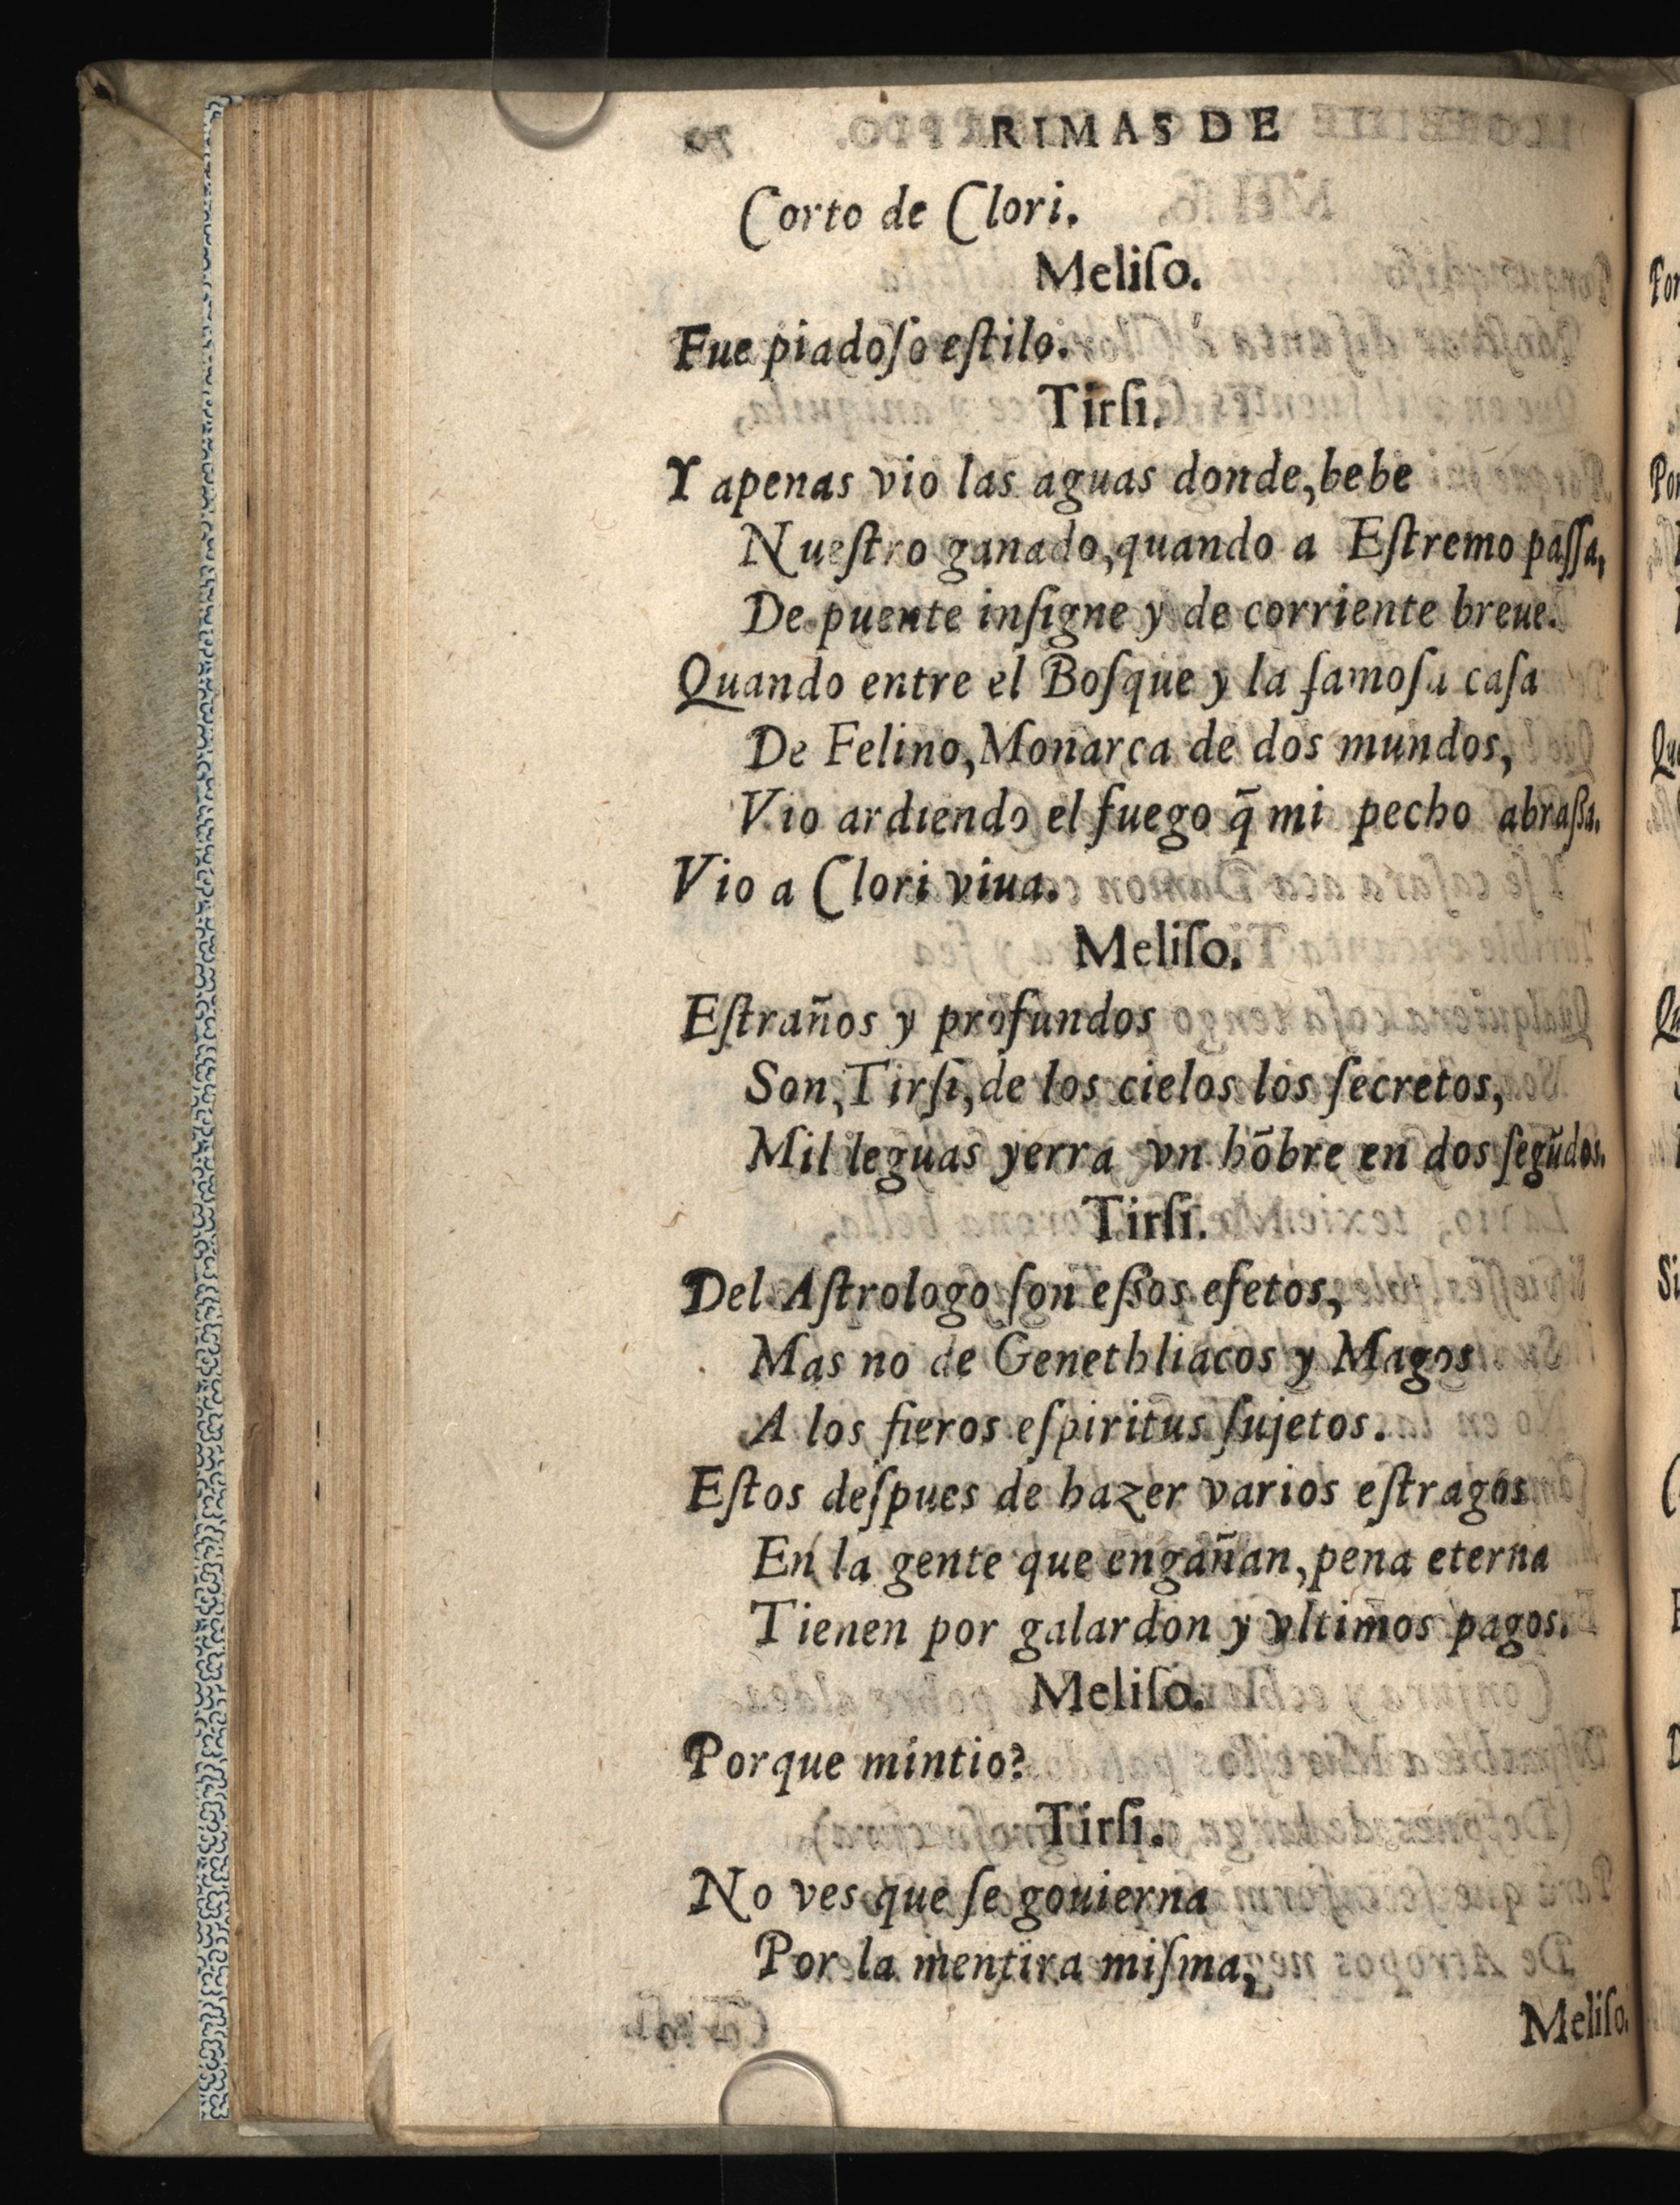 RIMAS DE
Corto de Clori.
Meliſo.
Fue piadoſo eſtilo.
Tirſi.
Y apenas vio las aguas donde,bebe
Nueſtro ganado,quando a Eſtremo paſſa,
De puente inſigne y de corriente breue.
Quando entre el Boſque y la famoſa caſa
De Felino,Monarca de dos mundos,
Vio ardiendo el fuego q̃ mi pecho abraſſa.
Vio a Clori viua.
Meliſo.
Eſtraños y profundos
Son,Tirſi,de los cielos los ſecretos,
Mil leguas yerra vn hõbre en dos ſegũdos.
Tirſi.
Del Aſtrologo ſon eſſos efetos,
Mas no de Genethliacos y Magos
A los fieros eſpiritus ſujetos.
Eſtos deſpues de hazer varios eſtragos
En la gente que engañan,pena eterna
Tienen por galardon y vltimos pagos.
Meliſo.
Porque mintio?
Tirſi.
No ves que ſe gouierna
Por la mentira miſma,
Meliſo.